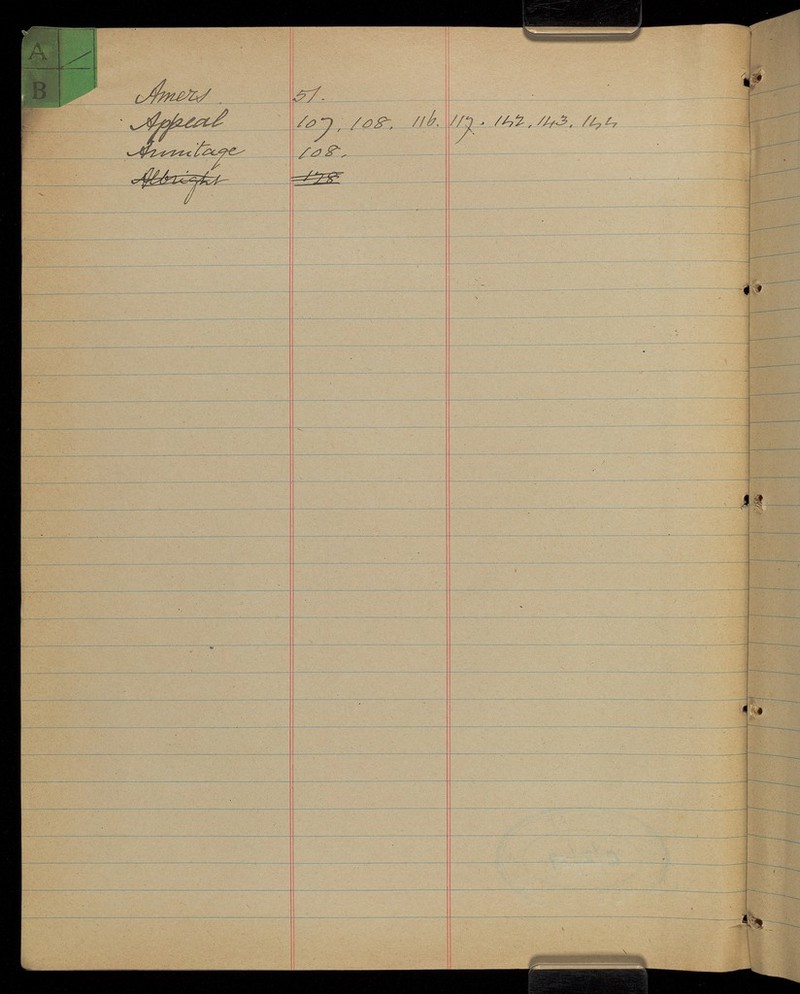 A
B
Amers 51.
Appeal 107. 108. 116. 117. 142. 143. 144
Armitage 108.
Albright 128